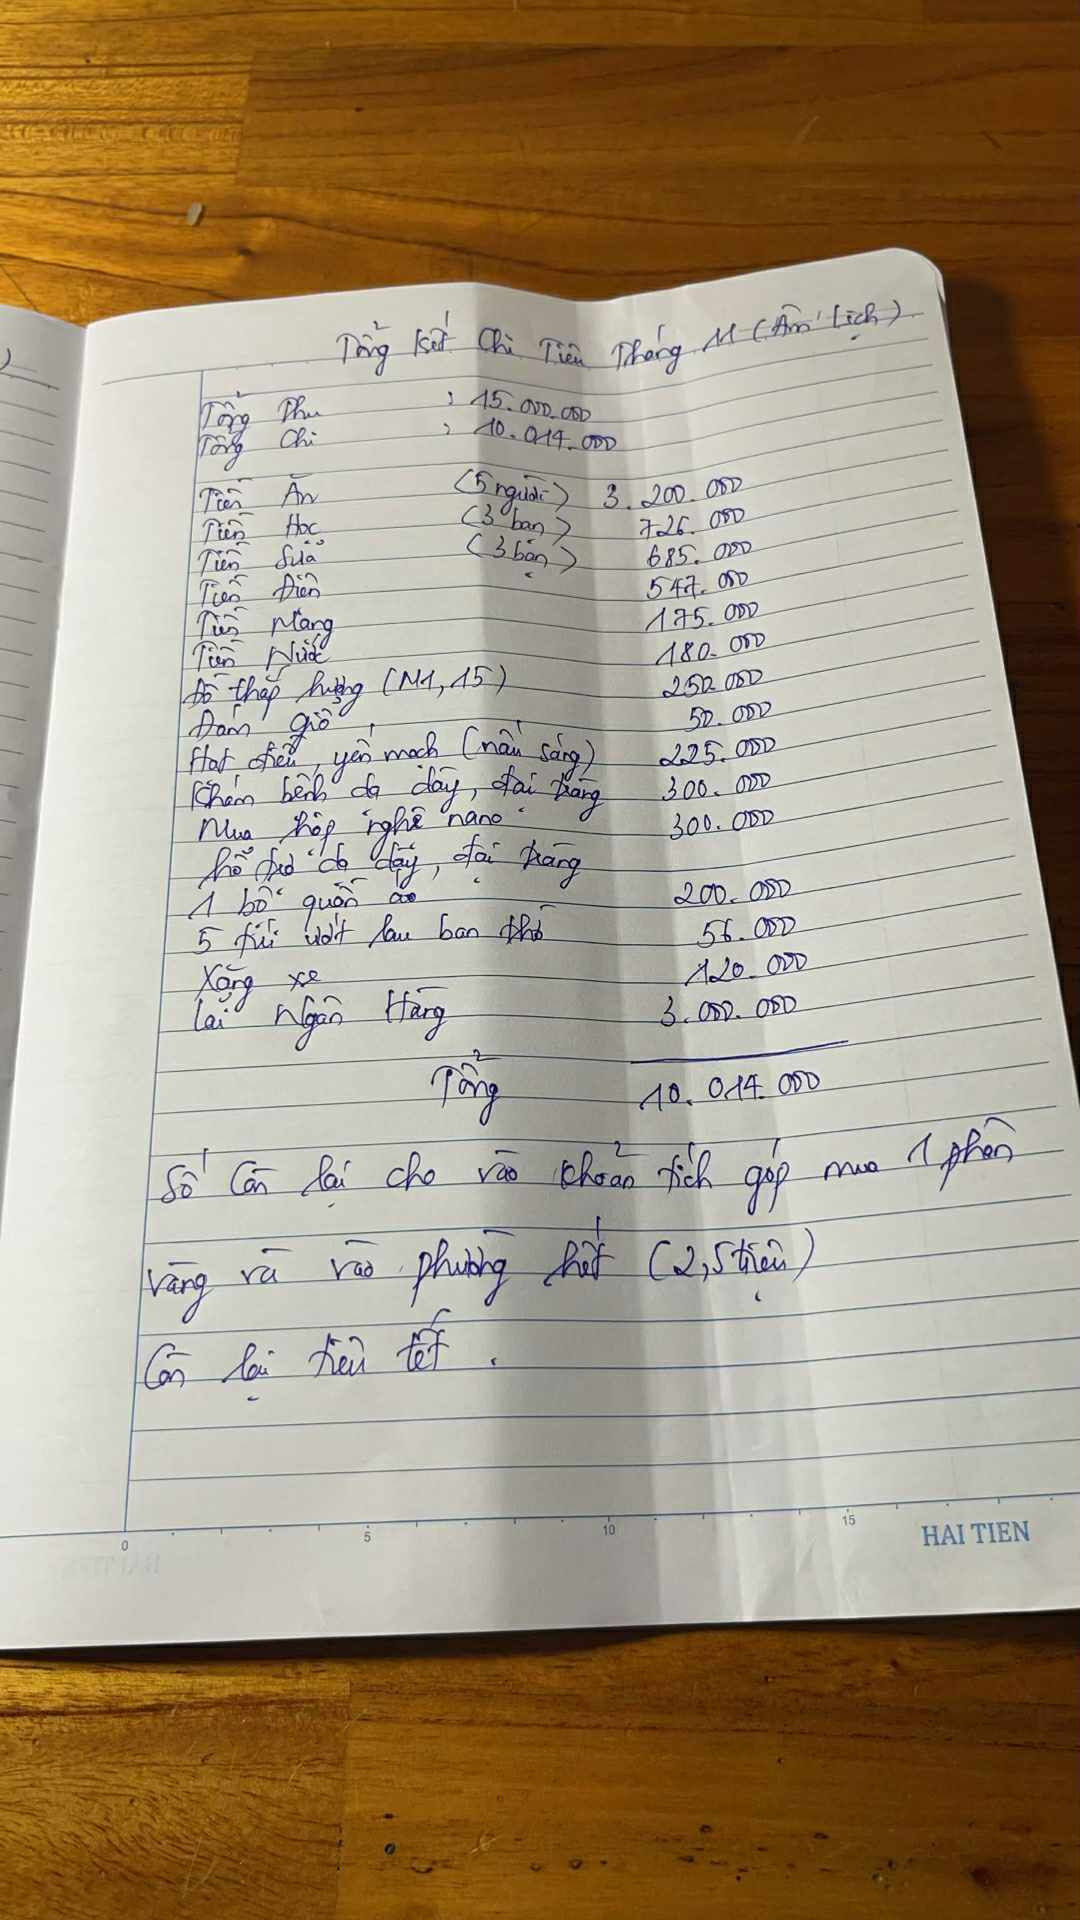 Tổng Kết Chi Tiêu Tháng 11 (Âm Lịch)
Tổng Thu : 15.000.000
Tổng Chi : 10.014.000
Tiền Ăn (5 người) 3.200.000
Tiền Học (3 bạn) 726.000
Tiền Sữa (3 bạn) 685.000
Tiền Điện 547.000
Tiền Mạng 175.000
Tiền Nước 180.000
Đồ thắp hương (M1, 15) 250.000
Đám giỗ 50.000
Hạt điều, yến mạch (nấu sáng) 225.000
Khám bệnh dạ dày, đại tràng 300.000
Mua hộp nghệ nano 300.000
hỗ trợ dạ dày, đại tràng
1 bộ quần áo 200.000
5 túi ướt lau ban thờ 56.000
Xăng xe 120.000
Lãi Ngân Hàng 3.000.000
Tổng 10.014.000
Số Còn lại cho vào khoản tích góp mua 1 phân
vàng và vào phường hết (2,5 triệu)
Còn lại tiêu tết.
0 5 10 15
HAI TIEN